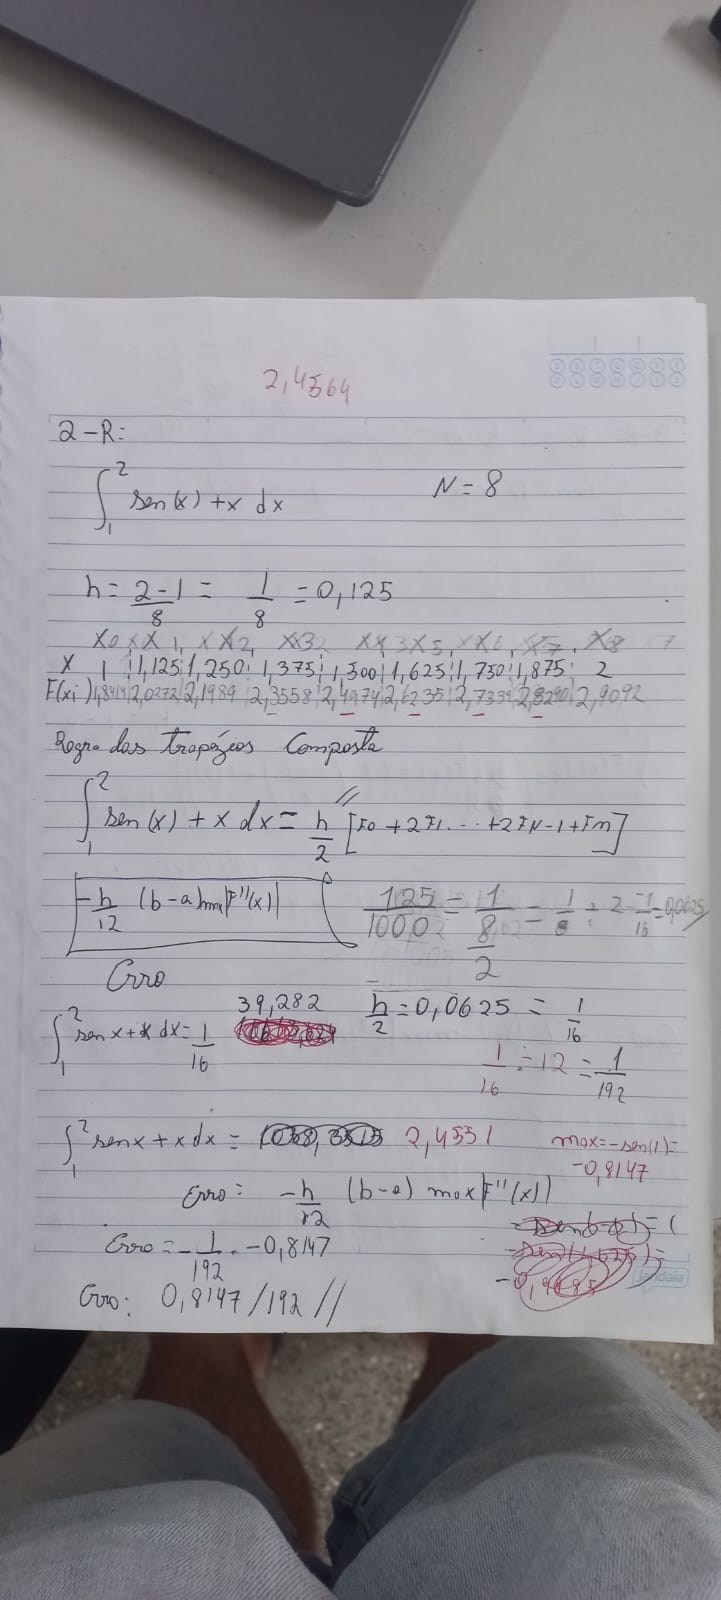 2,4564
2-R:
∫₁² sen(x) + x dx N = 8
h = 2-1/8 = 1/8 = 0,125
X0 X1 X2 X3 X4 X5 X6 X7 X8
X 1 1,125 1,250 1,375 1,500 1,625 1,750 1,875 2
F(xi) 1,8414 2,0272 2,1989 2,3558 2,4974 2,6235 2,7339 2,8290 2,9092
Regra dos trapézios Composta
∫₁² sen(x) + x dx = h/2 [F0 + 2F1 ... + 2FN-1 + Fn]
-h/12 (b-a) max|F''(x)| 125/1000 = 1/8/2 = 1/8 ÷ 2 = 1/16 = 0,0625//
Erro
39,282 h/2 = 0,0625 = 1/16
∫₁² sen x + x dx = 1/16
1/16 ÷ 12 = 1/192
∫₁² sen x + x dx = 2,4551 max = -sen(1) =
-0,8147
Erro: -h/12 (b-a) max|F''(x)|
Erro = -1/192 . -0,8147
Erro: 0,8147/192//
jandaia